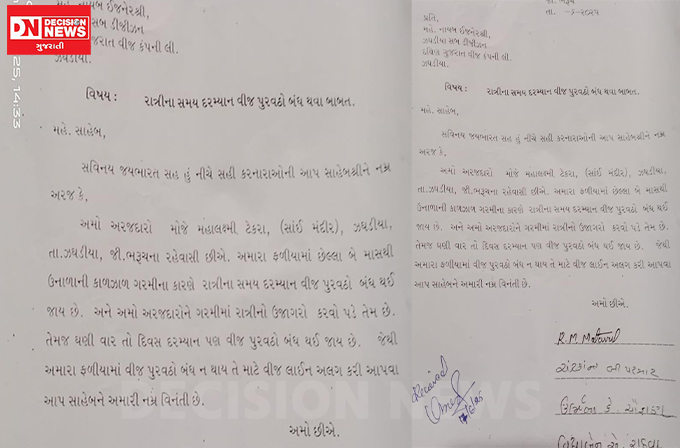 DN DECISION NEWS
ગુજરાતી
25, 14:33
મહે. નાયબ ઈજનેરશ્રી,
સબ ડીવીઝન
ગુજરાત વીજ કંપની લી.
ઝઘડીયા.
વિષય : રાત્રીના સમય દરમ્યાન વીજ પુરવઠો બંધ થવા બાબત.
મહે. સાહેબ,
સવિનય જયભારત સહ હું નીચે સહી કરનારાઓની આપ સાહેબશ્રીને નમ્ર
અરજ કે,
અમો અરજદારો મોજે મંહાલક્ષ્મી ટેકરા, (સાંઈ મંદીર), ઝઘડીયા,
તા.ઝઘડીયા, જી.ભરૂચના રહેવાસી છીએ. અમારા ફળીયામાં છેલ્લા બે માસથી
ઉનાળાની કાળઝાળ ગરમીના કારણે રાત્રીના સમય દરમ્યાન વીજ પુરવઠો બંધ થઈ
જાય છે. અને અમો અરજદારોને ગરમીમાં રાત્રીનો ઉજાગરો કરવો પડે તેમ છે.
તેમજ ઘણી વાર તો દિવસ દરમ્યાન પણ વીજ પુરવઠો બંધ થઈ જાય છે. જેથી
અમારા ફળીયામાં વીજ પુરવઠો બંધ ન થાય તે માટે વીજ લાઈન અલગ કરી આપવા
આપ સાહેબને અમારી નમ્ર વિનંતી છે.
અમો છીએ.
તા. -૬-૨૦૨૫
પ્રતિ,
મહે. નાયબ ઈજનેરશ્રી,
ઝઘડીયા સબ ડીવીઝન
દક્ષિણ ગુજરાત વીજ કંપની લી.
ઝઘડીયા.
વિષય : રાત્રીના સમય દરમ્યાન વીજ પુરવઠો બંધ થવા બાબત.
મહે. સાહેબ,
સવિનય જયભારત સહ હું નીચે સહી કરનારાઓની આપ સાહેબશ્રીને નમ્ર
અરજ કે,
અમો અરજદારો મોજે મહાલક્ષ્મી ટેકરા, (સાંઈ મંદીર), ઝઘડીયા,
તા.ઝઘડીયા, જી.ભરૂચના રહેવાસી છીએ. અમારા ફળીયામાં છેલ્લા બે માસથી
ઉનાળાની કાળઝાળ ગરમીના કારણે રાત્રીના સમય દરમ્યાન વીજ પુરવઠો બંધ થઈ
જાય છે. અને અમો અરજદારોને ગરમીમાં રાત્રીનો ઉજાગરો કરવો પડે તેમ છે.
તેમજ ઘણી વાર તો દિવસ દરમ્યાન પણ વીજ પુરવઠો બંધ થઈ જાય છે. જેથી
અમારા ફળીયામાં વીજ પુરવઠો બંધ ન થાય તે માટે વીજ લાઈન અલગ કરી આપવા
આપ સાહેબને અમારી નમ્ર વિનંતી છે.
અમો છીએ.
R.M
Received
DECISION NEWS